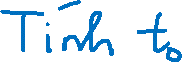 Tính t₀